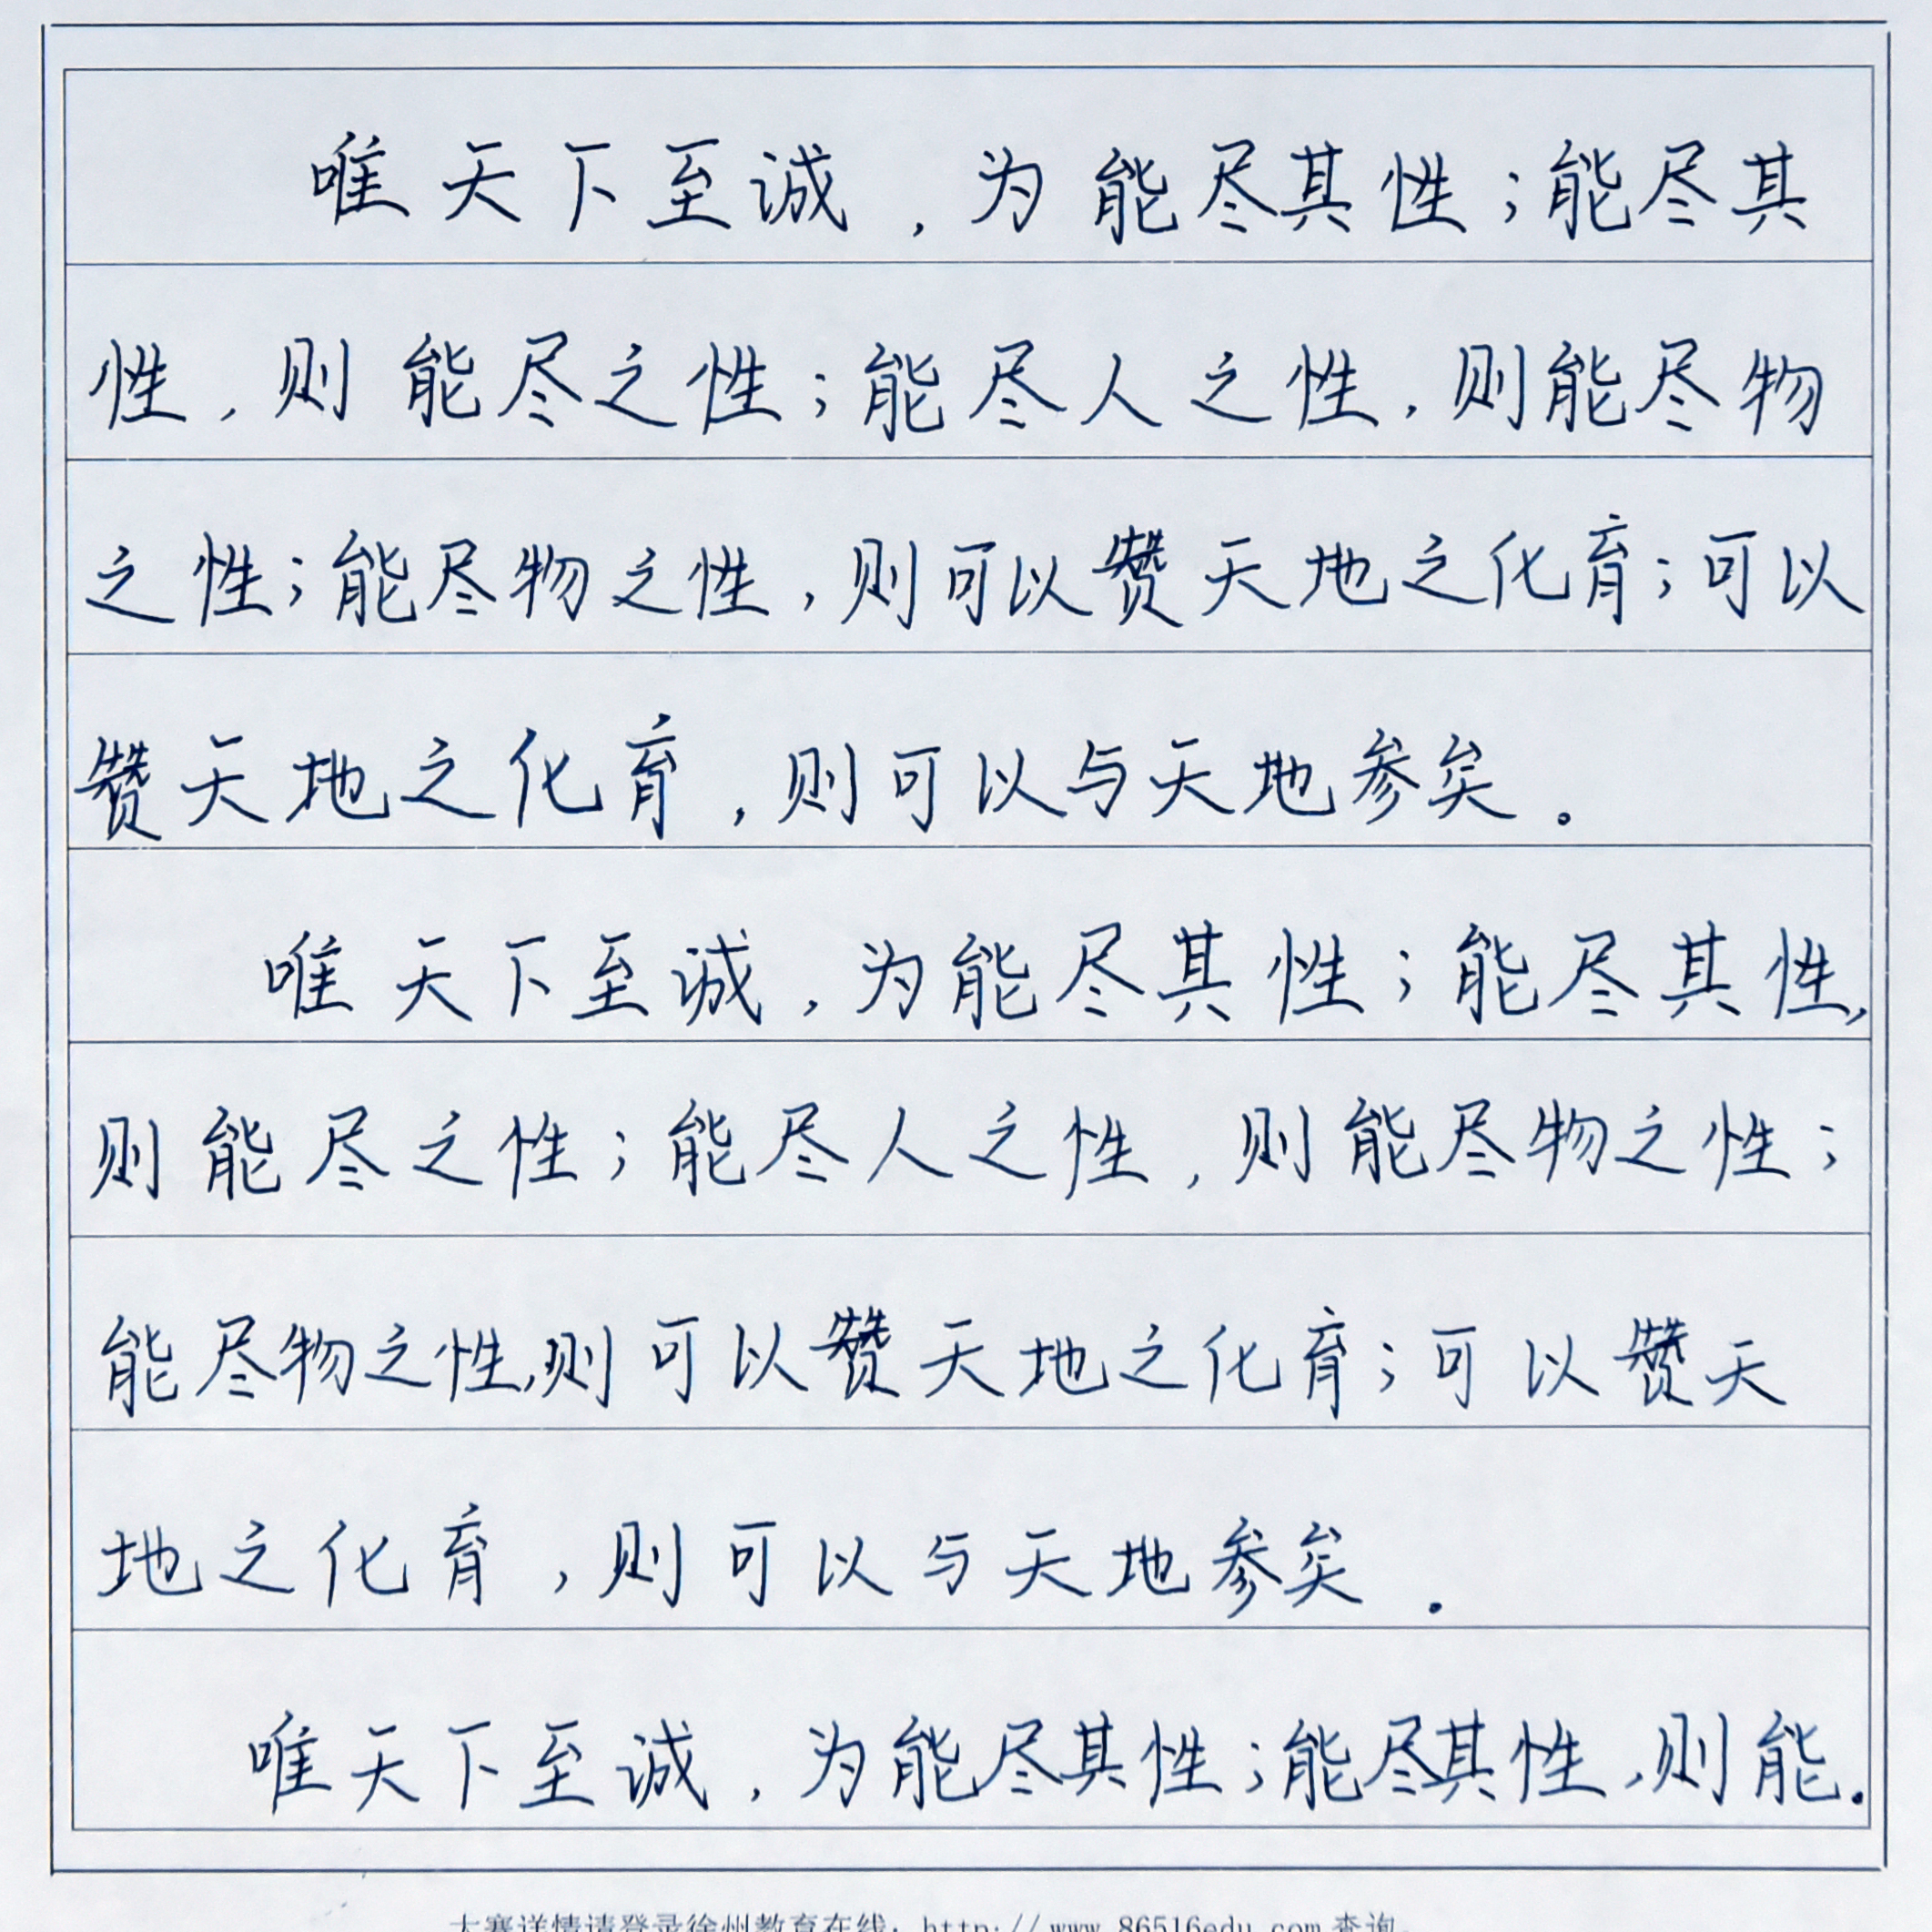 唯天下至诚,为能尽其性;能尽其
性,则能尽之性;能尽人之性,则能尽物
之性;能尽物之性,则可以赞天地之化育;可以
赞天地之化育,则可以与天地参矣。
唯天下至诚,为能尽其性;能尽其性,
则能尽之性;能尽人之性,则能尽物之性;
能尽物之性,则可以赞天地之化育;可以赞天
地之化育,则可以与天地参矣.
唯天下至诚,为能尽其性;能尽其性,则能.
大赛详情请登录徐州教育在线: http://www.86516edu.com查询。